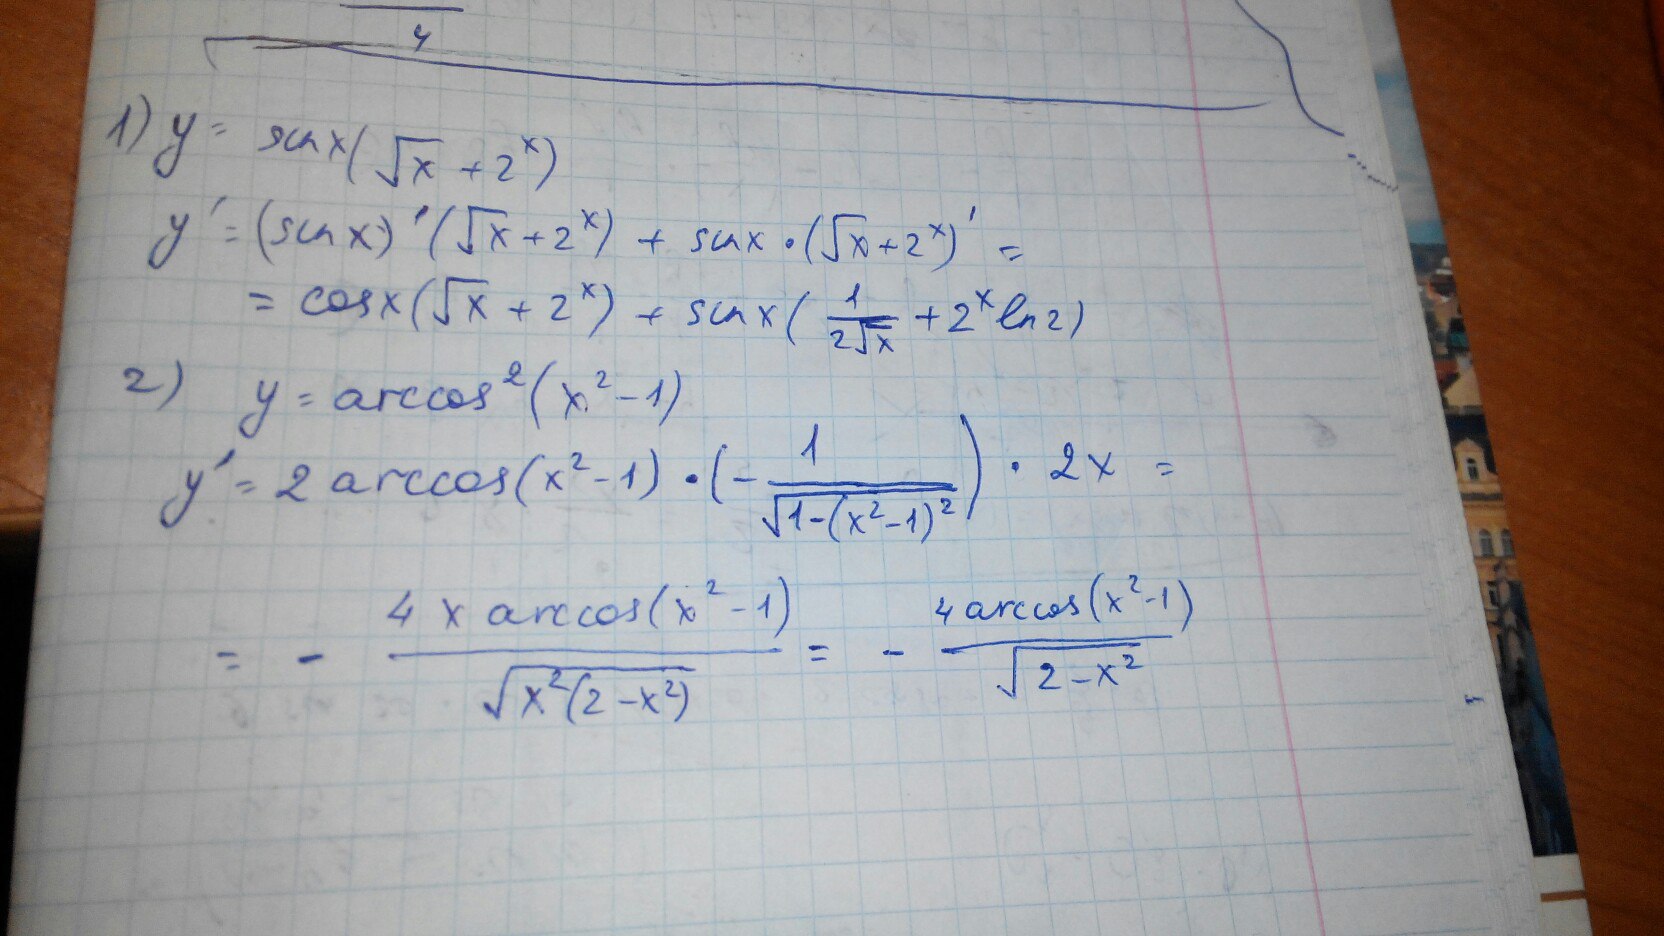 4
1) y = sin x(√x + 2^x)
y' = (sin x)'(√x + 2^x) + sin x · (√x + 2^x)' =
= cos x(√x + 2^x) + sin x(1/(2√x) + 2^x ln 2)
2) y = arccos²(x² - 1)
y' = 2 arccos(x² - 1) · (- 1/√(1-(x²-1)²)) · 2x =
= - 4 x arccos(x² - 1)/√(x²(2-x²)) = - 4 arccos(x²-1)/√(2-x²)